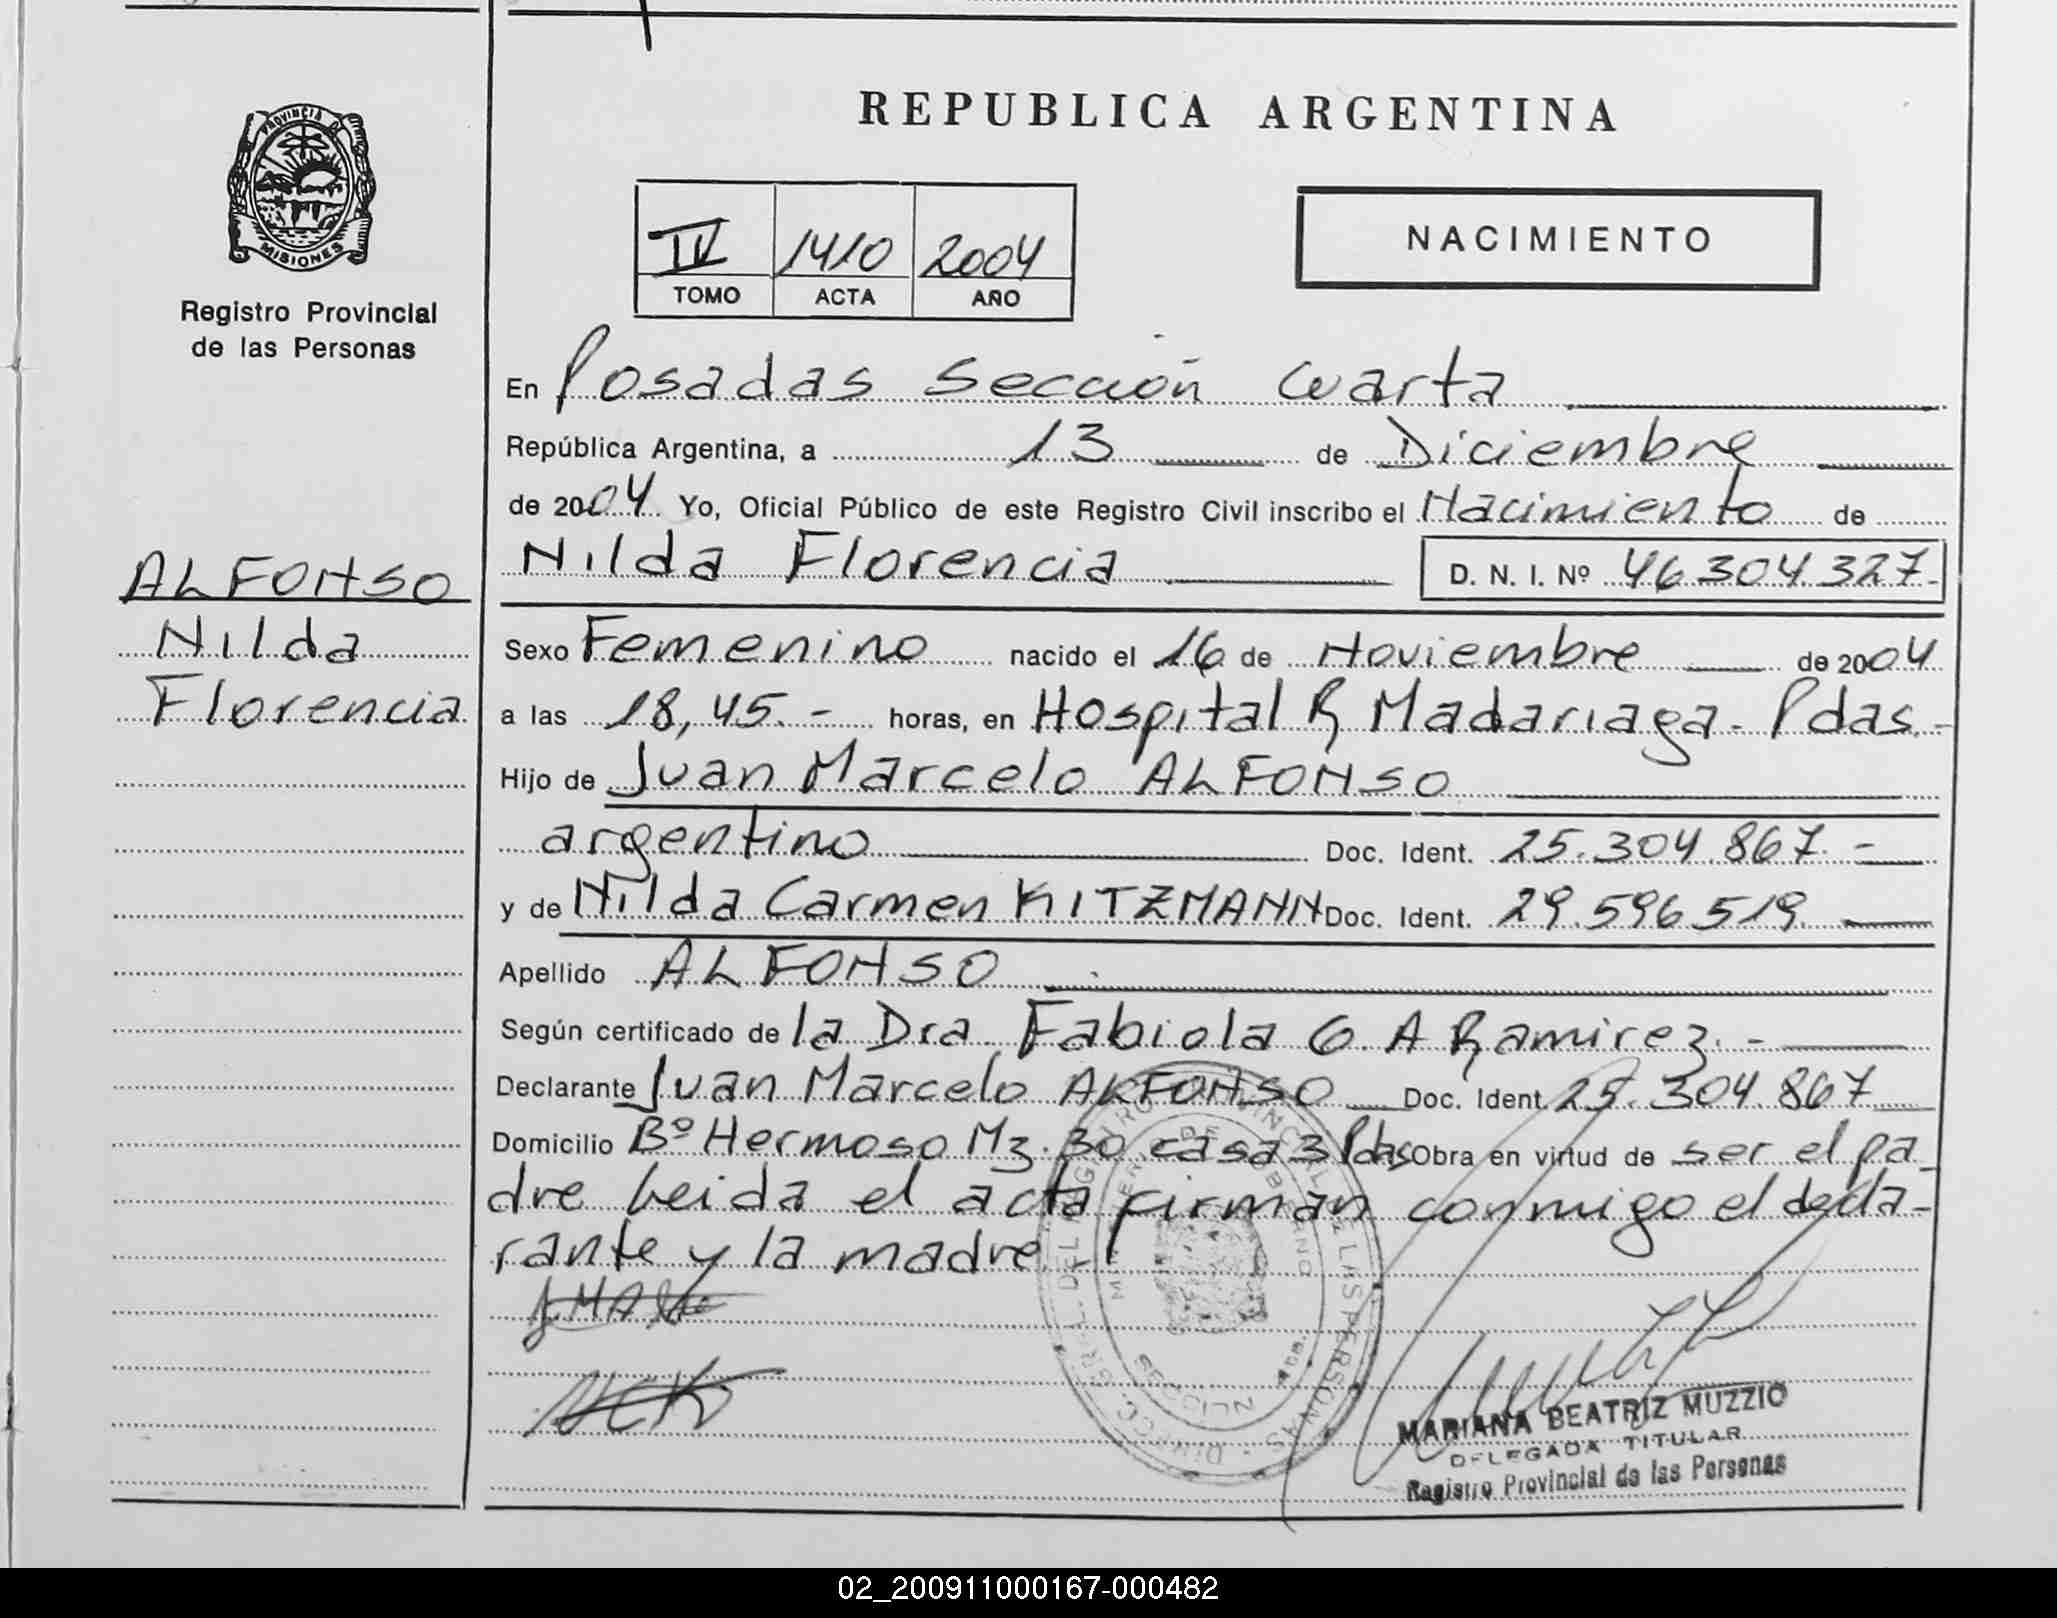 REPUBLICA ARGENTINA
PROVINCIA DE
MISIONES
Registro Provincial
de las Personas
IV 1410 2004
TOMO ACTA AÑO
NACIMIENTO
En Posadas Sección Cuarta
República Argentina, a 13 de Diciembre
de 2004 Yo, Oficial Público de este Registro Civil inscribo el Nacimiento de
Nilda Florencia D. N. I. Nº 46304327-
ALFONSO
Nilda
Florencia
Sexo Femenino nacido el 16 de Noviembre de 2004
a las 18,45.- horas, en Hospital R Madariaga. Pdas.-
Hijo de Juan Marcelo ALFONSO
argentino Doc. Ident. 25.304.867.-
y de Nilda Carmen KITZMANN Doc. Ident. 29.596.519.
Apellido ALFONSO
Según certificado de la Dra. Fabiola G. A Ramirez.-
Declarante Juan Marcelo ALFONSO Doc. Ident. 25.304.867
Domicilio Bº Hermoso Mz. 30 casa 3 Pdas Obra en virtud de ser el pa
dre Leida el acta firman conmigo el decla-
rante y la madre
MARIANA BEATRIZ MUZZIO
DELEGADA TITULAR
Registro Provincial de las Personas
02_200911000167-000482